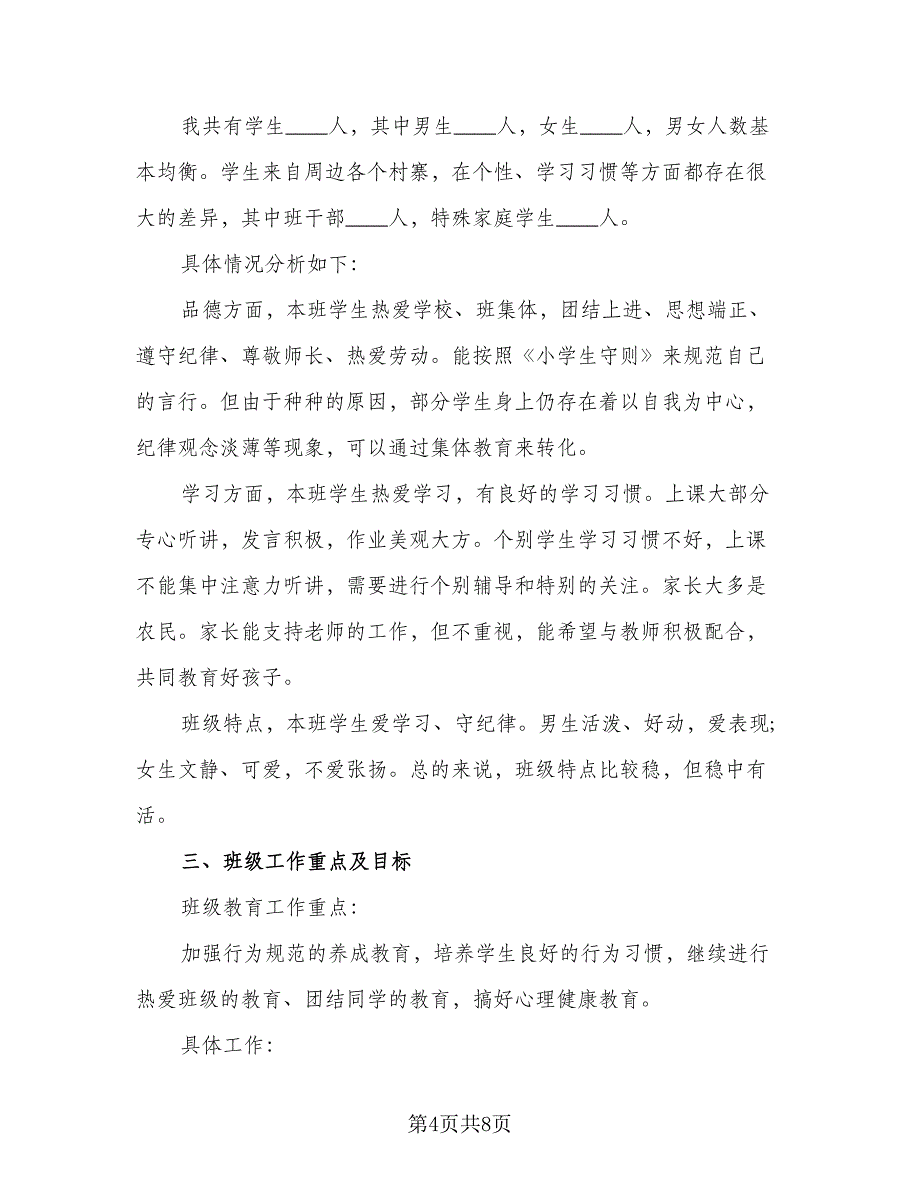 我共有学生____人，其中男生____人，女生____人，男女人数基
本均衡。学生来自周边各个村寨，在个性、学习习惯等方面都存在很
大的差异，其中班干部____人，特殊家庭学生____人。
具体情况分析如下：
品德方面，本班学生热爱学校、班集体，团结上进、思想端正、
遵守纪律、尊敬师长、热爱劳动。能按照《小学生守则》来规范自己
的言行。但由于种种的原因，部分学生身上仍存在着以自我为中心，
纪律观念淡薄等现象，可以通过集体教育来转化。
学习方面，本班学生热爱学习，有良好的学习习惯。上课大部分
专心听讲，发言积极，作业美观大方。个别学生学习习惯不好，上课
不能集中注意力听讲，需要进行个别辅导和特别的关注。家长大多是
农民。家长能支持老师的工作，但不重视，能希望与教师积极配合，
共同教育好孩子。
班级特点，本班学生爱学习、守纪律。男生活泼、好动，爱表现;
女生文静、可爱，不爱张扬。总的来说，班级特点比较稳，但稳中有
活。
三、班级工作重点及目标
班级教育工作重点：
加强行为规范的养成教育，培养学生良好的行为习惯，继续进行
热爱班级的教育、团结同学的教育，搞好心理健康教育。
具体工作：
第4页共8页